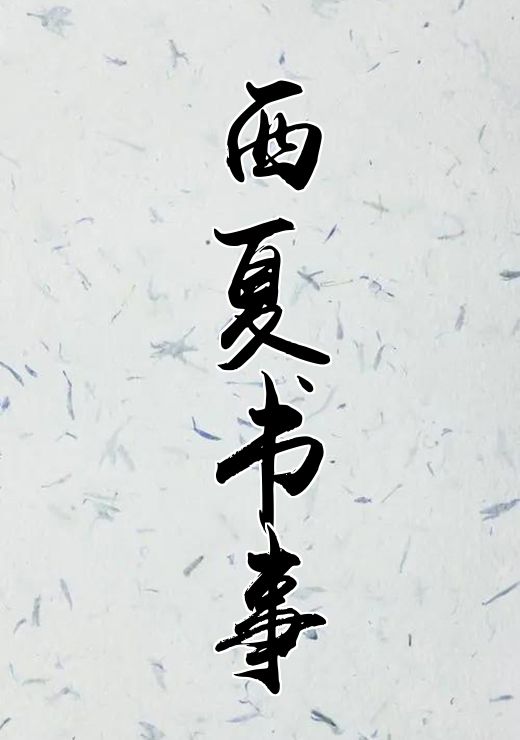 西夏书事